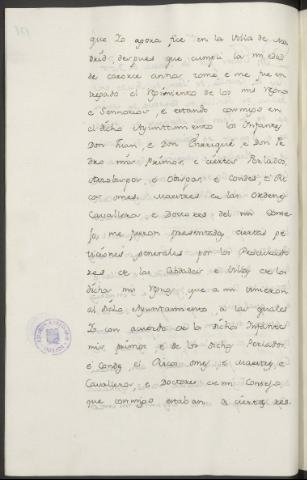 que Yo agora fice en la Villa de Ma
drid, despues que cumpli la mi edad
de catorce annos, tomé, e me fue en
tregado el Regimiento de los mis Regnos
e Sennorios, e estando conmigo en
el dicho Ayuntamiento los Infantes
Don Juan, e Don Enrrique, e Don Pe
dro mis Primos, e ciertos Perlados,
Arzobispos, e Obispos, e Condes, e Ri
cos omes, Maestres de las Ordenes
Cavalleros, e Doctores del mi Conse
jo, me fueron presentadas ciertas pe
ticiones generales por los Procurado
res de las Cibdades e Villas de los
dichos mis Regnos, que a mi vinieron
al dicho Ayuntamiento, a las quales
Yo con acuerdo de los dichos Infantes
mis primos, e de los dichos Perlados,
e Condes, e Ricos omes, e Maestres, e
Cavalleros, e Doctores de mi Consejo,
que conmigo estaban, a ciertas res